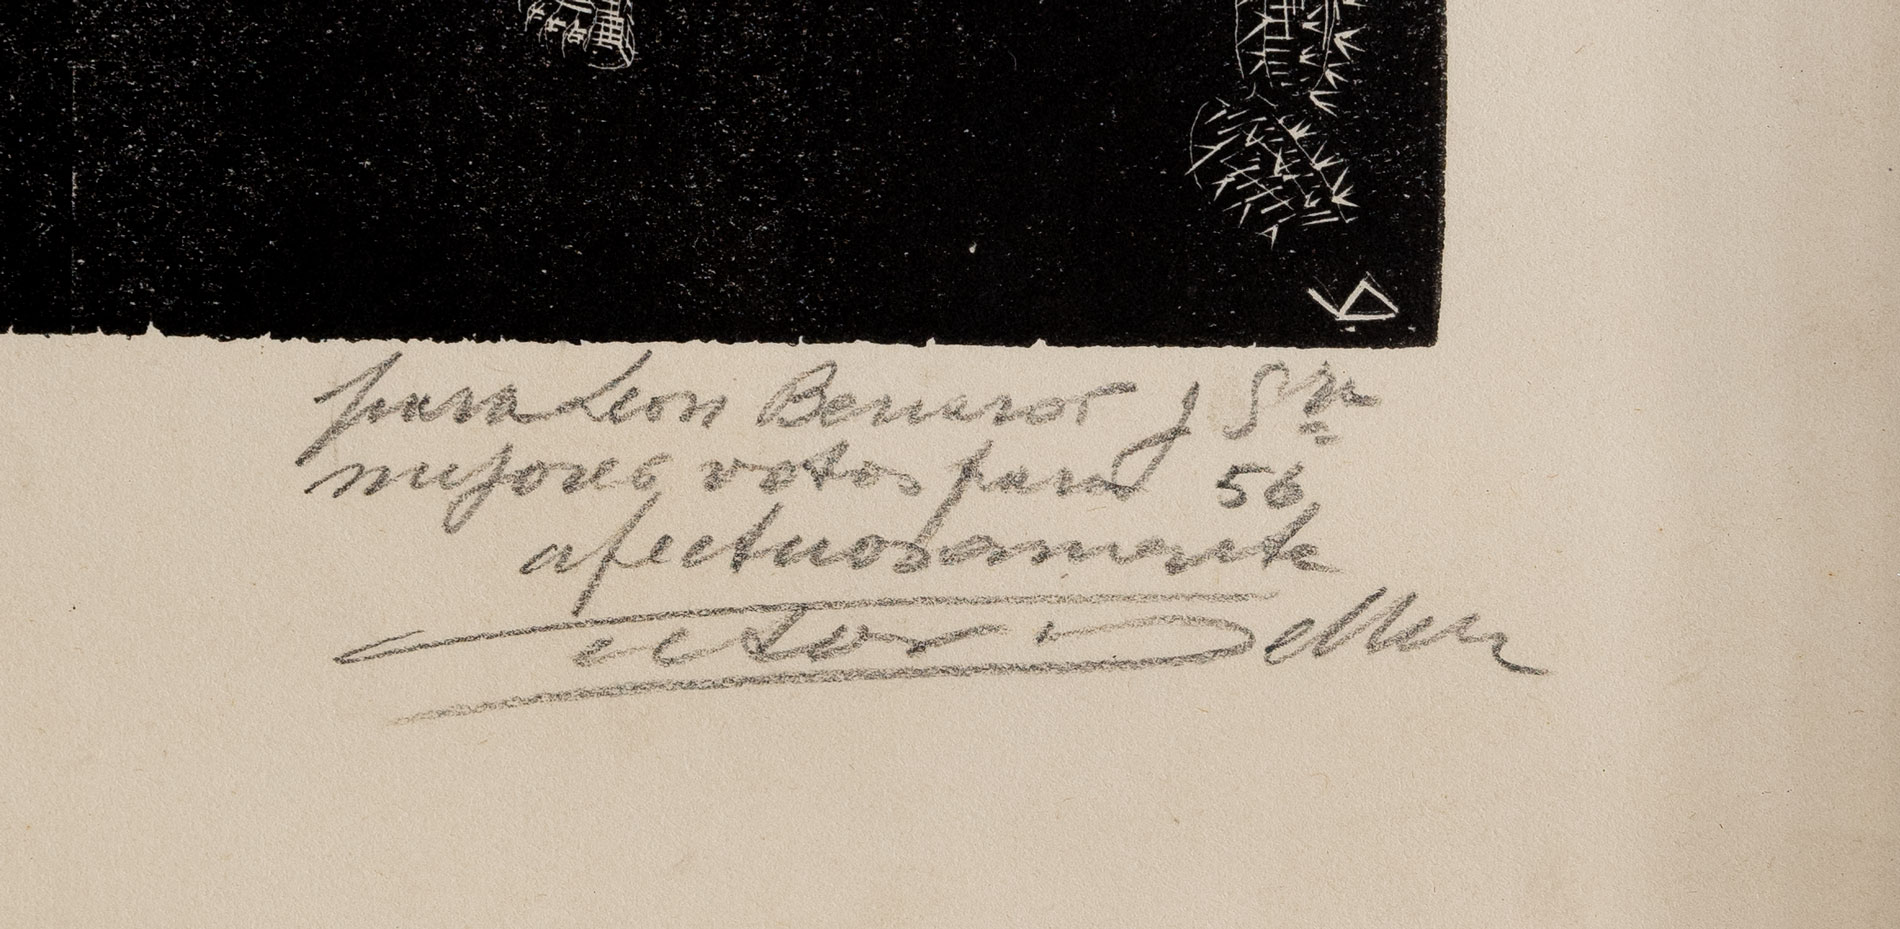 VD
para Leon Benaros y Sra
mejores votos para 56
afectuosamente
Victor Delhez